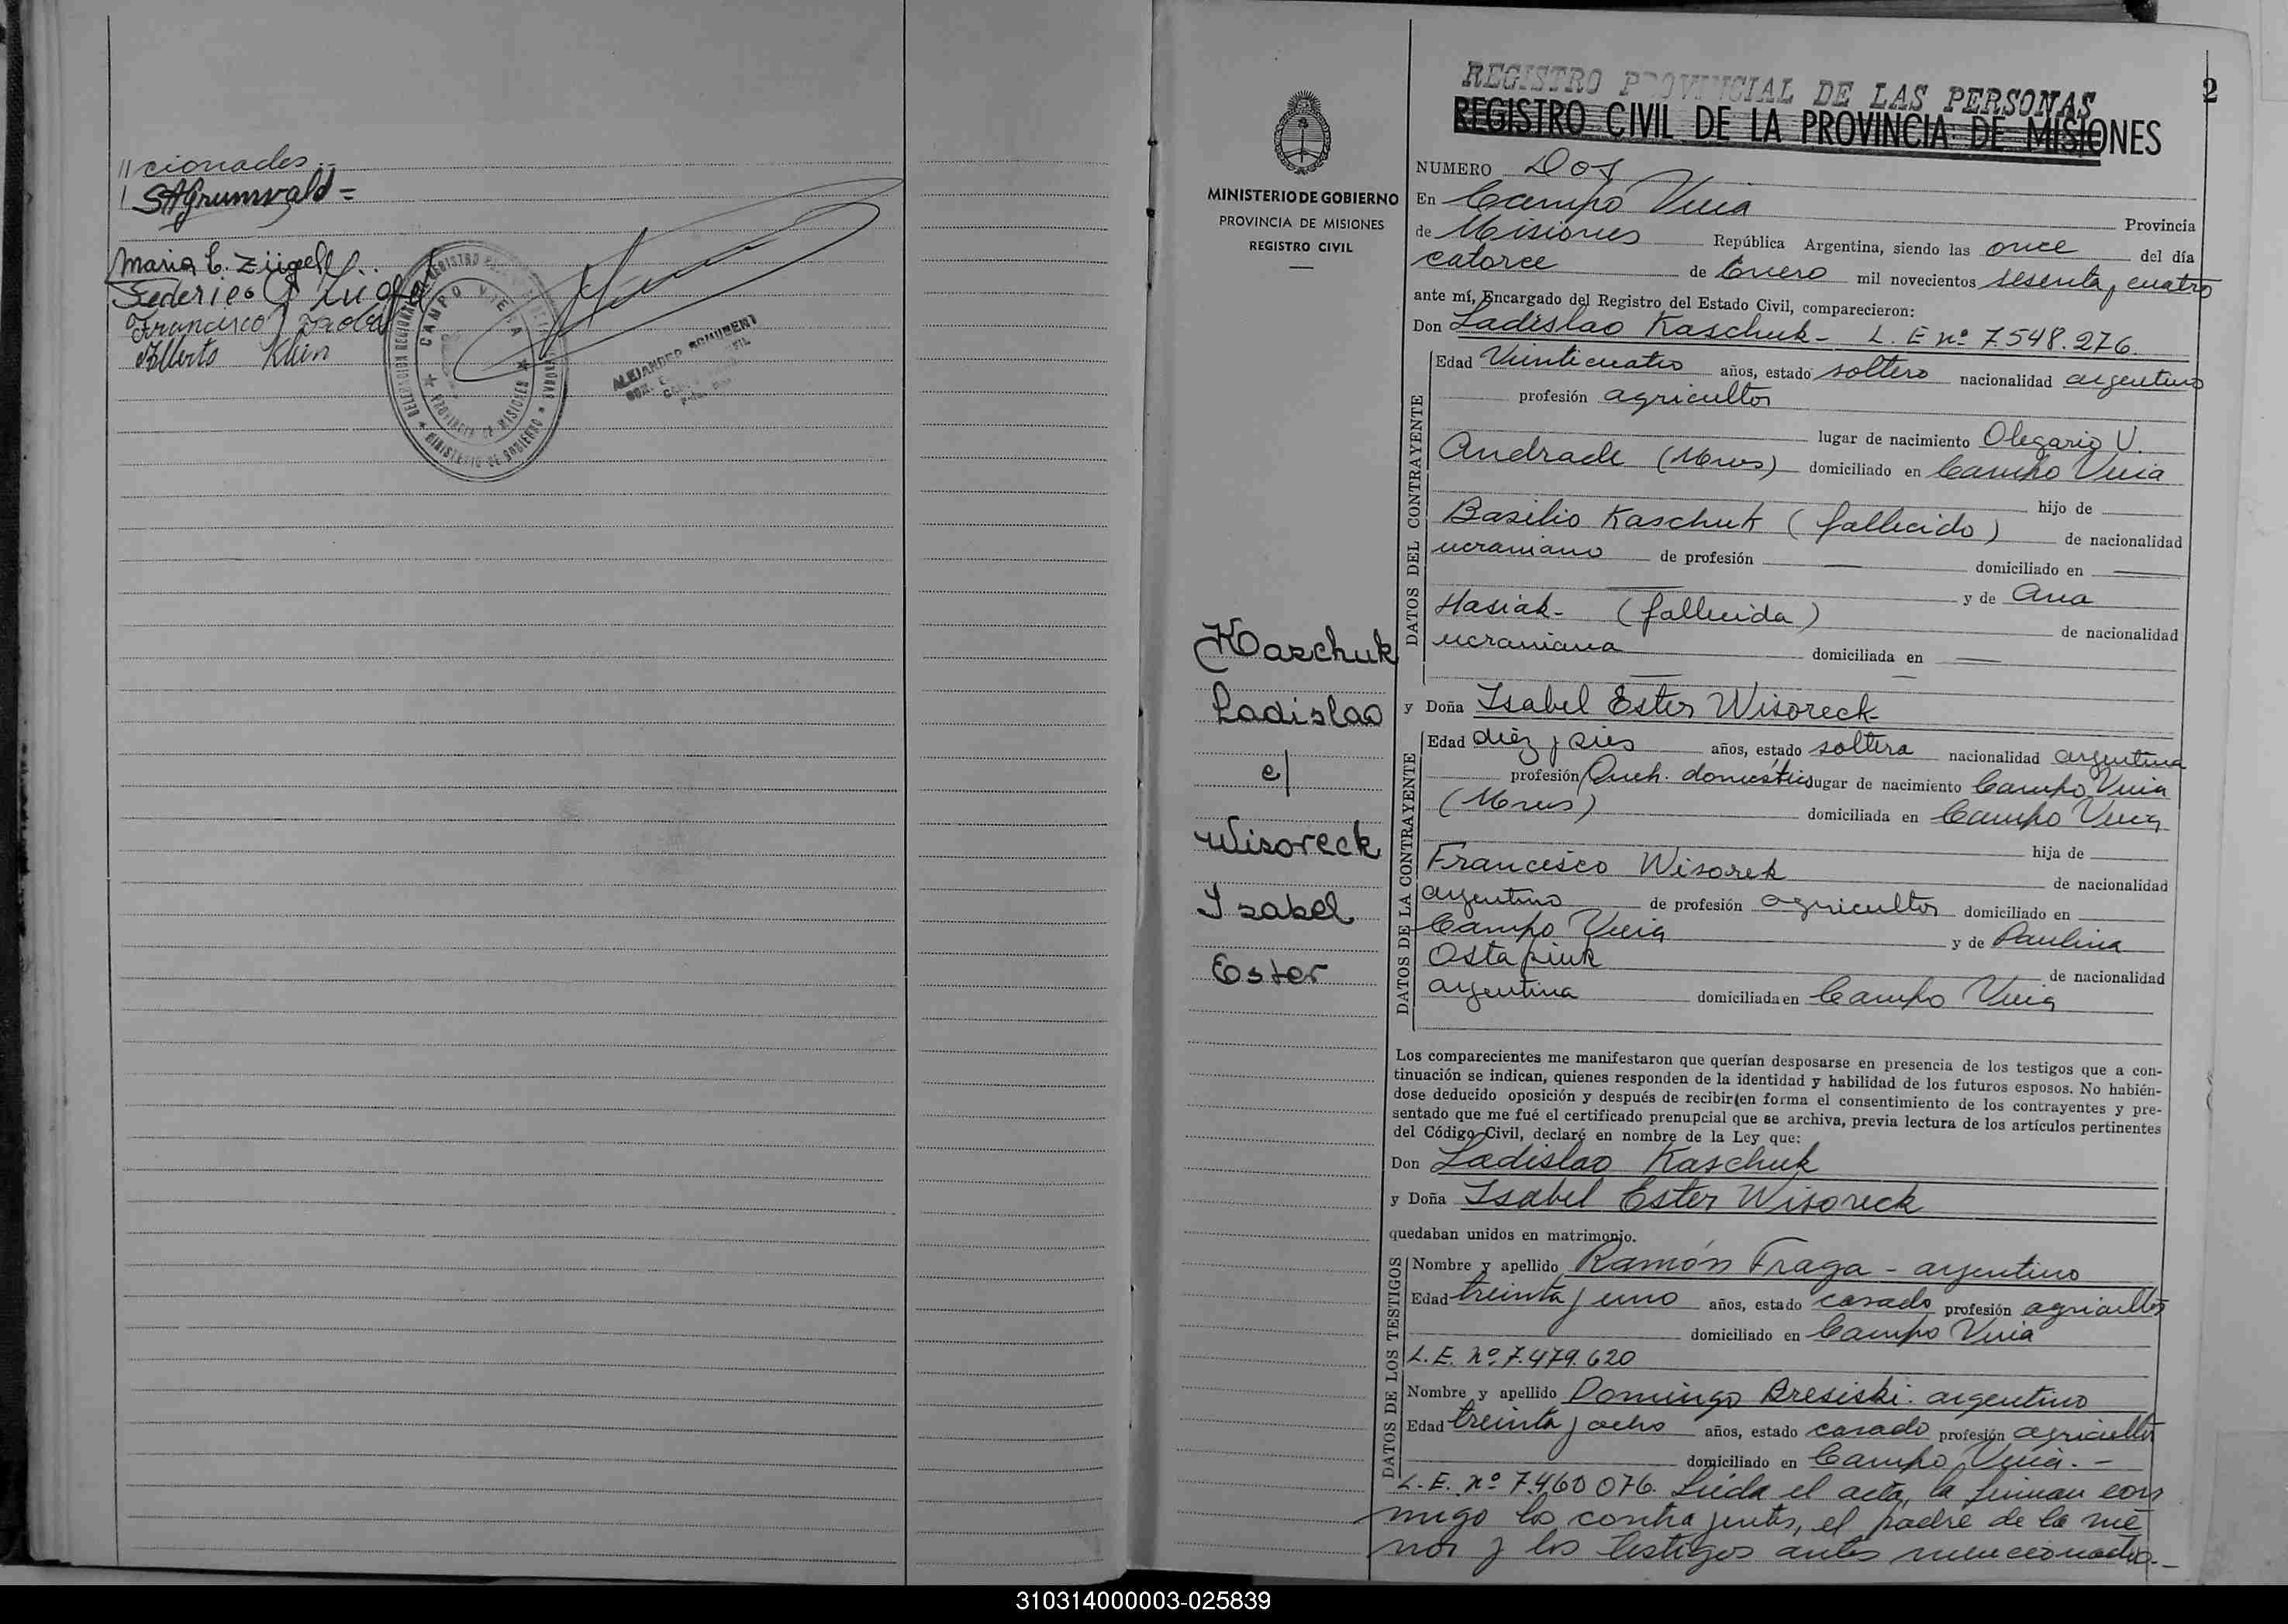 cionados.=
SAGrunwald=
Maria C. Zügell
Federico
Francisco
Alberto Klein
CAMPO VIERA
PROVINCIA DE MISIONES
MINISTERIO DE GOBIERNO
ALEJANDRO
MINISTERIO DE GOBIERNO
PROVINCIA DE MISIONES
REGISTRO CIVIL
Kaschuk
Ladislao
c/
Wisoreck
Isabel
Ester
2
REGISTRO PROVINCIAL DE LAS PERSONAS
REGISTRO CIVIL DE LA PROVINCIA DE MISIONES
NUMERO Dos
En Campo Viera Provincia
de Misiones República Argentina, siendo las once del día
catorce de Enero mil novecientos sesenta y cuatro
ante mí, Encargado del Registro del Estado Civil, comparecieron:
Don Ladislao Kaschuk - L. E nº 7.548.276.
DATOS DEL CONTRAYENTE
Edad Veinticuatro años, estado soltero nacionalidad argentino
profesión agricultor
lugar de nacimiento Olegario V.
Andrade (Mnes) domiciliado en Campo Viera
hijo de
Basilio Kaschuk (fallecido) de nacionalidad
ucraniano de profesión — domiciliado en —
y de Ana
Hasiak- (fallecida) de nacionalidad
ucraniana domiciliada en —
y Doña Isabel Ester Wisoreck
DATOS DE LA CONTRAYENTE
Edad diez y seis años, estado soltera nacionalidad argentina
profesión Queh. domésticos lugar de nacimiento Campo Viera
(Mnes) domiciliada en Campo Viera
hija de
Francisco Wisorek de nacionalidad
argentino de profesión agricultor domiciliado en
Campo Viera y de Paulina
Ostapiuk de nacionalidad
argentina domiciliada en Campo Viera
Los comparecientes me manifestaron que querían desposarse en presencia de los testigos que a con-
tinuación se indican, quienes responden de la identidad y habilidad de los futuros esposos. No habién-
dose deducido oposición y después de recibir(en forma el consentimiento de los contrayentes y pre-
sentado que me fué el certificado prenupcial que se archiva, previa lectura de los artículos pertinentes
del Código Civil, declaré en nombre de la Ley que:
Don Ladislao Kaschuk
y Doña Isabel Ester Wisoreck
quedaban unidos en matrimonio.
DATOS DE LOS TESTIGOS
Nombre y apellido Ramón Fraga - argentino
Edad treinta y uno años, estado casado profesión agricultor
domiciliado en Campo Viera
L. E. nº 7.479.620
Nombre y apellido Domingo Bresiski. argentino
Edad treinta y ocho años, estado casado profesión agricultor
domiciliado en Campo Viera. -
L. E. nº 7.460 076. Leída el acta, la firman con
migo los contrayentes, el padre de la me
nor y los testigos antes mencionados.-
310314000003-025839